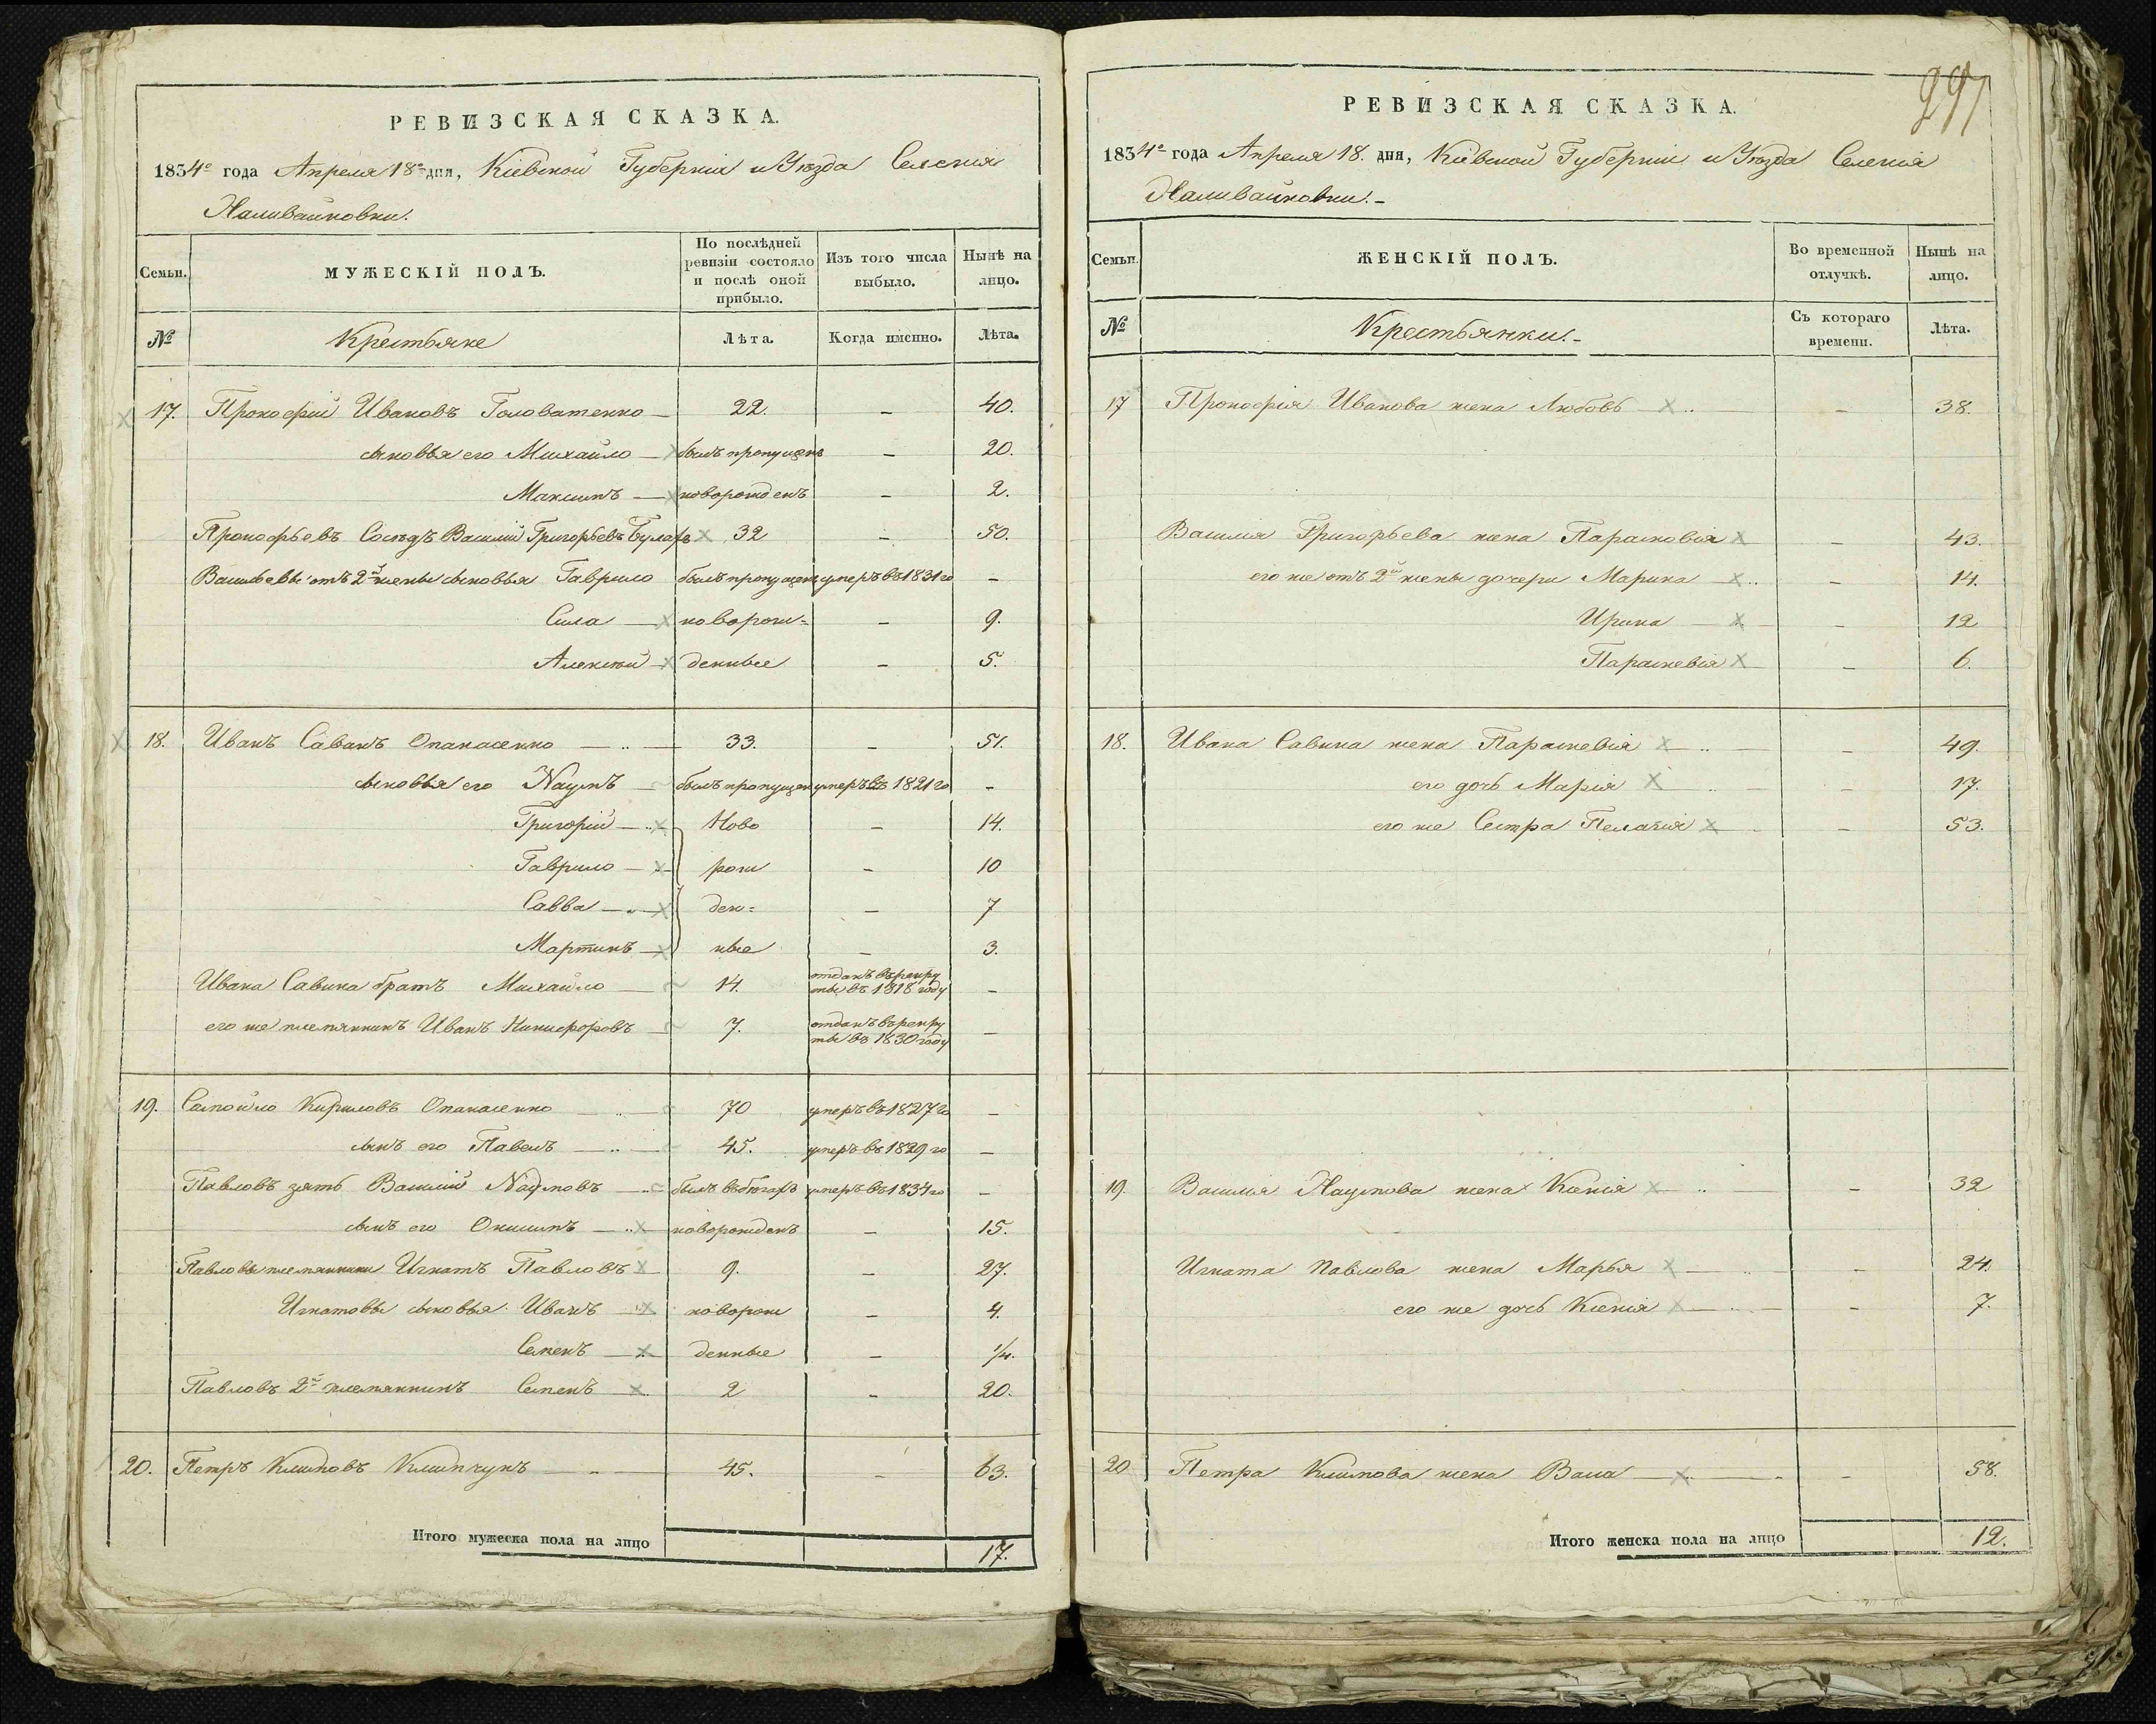 РЕВИЗСКАЯ СКАЗКА.
1834го года Апреля 18го дня, Кіевской Губерніи и Уѣзда Селенія
Наливайковки.
Семьи.
МУЖЕСКІЙ ПОЛЪ.
По послѣдней ревизіи состояло и послѣ оной прибыло.
Изъ того числа выбыло.
Нынѣ на лицо.
№
Крестьяне
Лѣта.
Когда именно.
Лѣта.
17. Прокофій Ивановъ Головатенко 22. – 40.
сыновья его Михайло былъ пропущенъ – 20.
Максимъ новорожденъ – 2.
Прокофьевъ Сосѣдъ Василій Григорьевъ 32 – 50.
Васильевы отъ 2й жены сыновья Гаврило былъ пропущенъ умеръ въ 1831 го –
Сила новорож= – 9.
Алексѣй денные – 5.
18. Иванъ Савинъ Опанасенко 33. – 51.
сыновья его Наумъ былъ пропущен умеръ въ 1821 го –
Григорій Ново – 14.
Гаврило рож – 10
Савва ден= – 7
Мартинъ ные – 3.
Ивана Савина братъ Михайло 14. отданъ въ рекру ты въ 1818 году –
его же племянникъ Иванъ Никифоровъ 7. отданъ въ рекру ты въ 1830 году –
19. Самойло Кириловъ Опанасенко 70 умеръ въ 1827 го –
сынъ его Павелъ 45. умеръ въ 1829 го –
Павловъ зять Василій Наумовъ былъ въ бѣгахъ умеръ въ 1834 го –
сынъ его Онисимъ новорожденъ – 15.
Павловы племянники Игнатъ Павловъ 9. – 27.
Игнатовы сыновья Иванъ новорож – 4.
Семенъ денные – 1/4.
Павловъ 2й племянникъ Семенъ 2 – 20.
20. Петръ Климовъ Климчукъ 45. – 63.
Итого мужеска пола на лицо 17.
997
РЕВИЗСКАЯ СКАЗКА.
1834го года Апреля 18. дня, Кіевской Губерніи и Уѣзда Селенія
Наливайковки.
Семьи.
ЖЕНСКІЙ ПОЛЪ.
Во временной отлучкѣ.
Нынѣ на лицо.
№
Крестьянки.
Съ котораго времени.
Лѣта.
17 Прокофія Иванова жена Любовь – 38.
Василія Григорьева жена Парасковія – 43.
его же отъ 2й жены дочери Марина – 14.
Ирина – 12
Параскевія – 6.
18. Ивана Савина жена Параскевія – 49.
его дочь Марія – 17.
его же Сестра Пелагія – 53.
19. Василія Наумова жена Ксенія – 32
Игната Павлова жена Марья – 24.
его же дочь Ксенія – 7.
20 Петра Климова жена Васа – 58.
Итого женска пола на лицо 12.